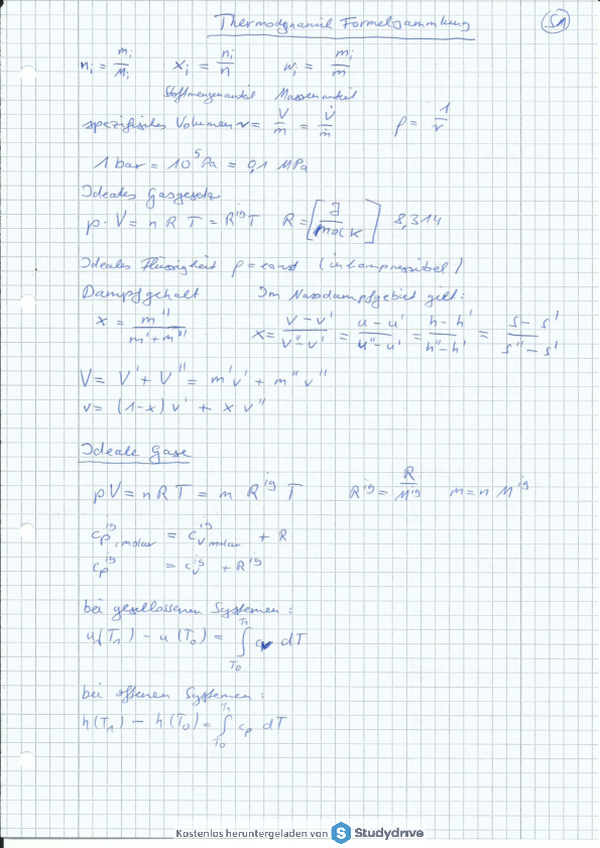 Thermodynamik Formelsammlung S1
nᵢ = mᵢ/Mᵢ xᵢ = nᵢ/n wᵢ = mᵢ/m
Stoffmengenanteil Massenanteil
spezifisches Volumen v = V/m = V̇/ṁ ρ = 1/v
1 bar = 10⁵ Pa = 0,1 MPa
Ideales Gasgesetz
p · V = n R T = Rⁱᵍ T R = [J/mol K] 8,314
Ideales Flüssigkeit ρ = const (inkompressibel)
Dampfgehalt Im Nassdampfgebiet gilt:
x = m''/(m' + m'') x = (v - v')/(v'' - v') = (u - u')/(u'' - u') = (h - h')/(h'' - h') = (s - s')/(s'' - s')
V = V' + V'' = m'v' + m''v''
v = (1-x) v' + x v''
Ideale Gase
pV = n R T = m Rⁱᵍ T Rⁱᵍ = R/Mⁱᵍ m = n Mⁱᵍ
cₚⁱᵍ,molar = cᵥⁱᵍ molar + R
cₚⁱᵍ = cᵥⁱᵍ + Rⁱᵍ
bei geschlossenen Systemen:
u(T₁) - u(T₀) = ∫_{T₀}^{T₁} cᵥ dT
bei offenen Systemen:
h(T₁) - h(T₀) = ∫_{T₀}^{T₁} cₚ dT
Kostenlos heruntergeladen von S Studydrive